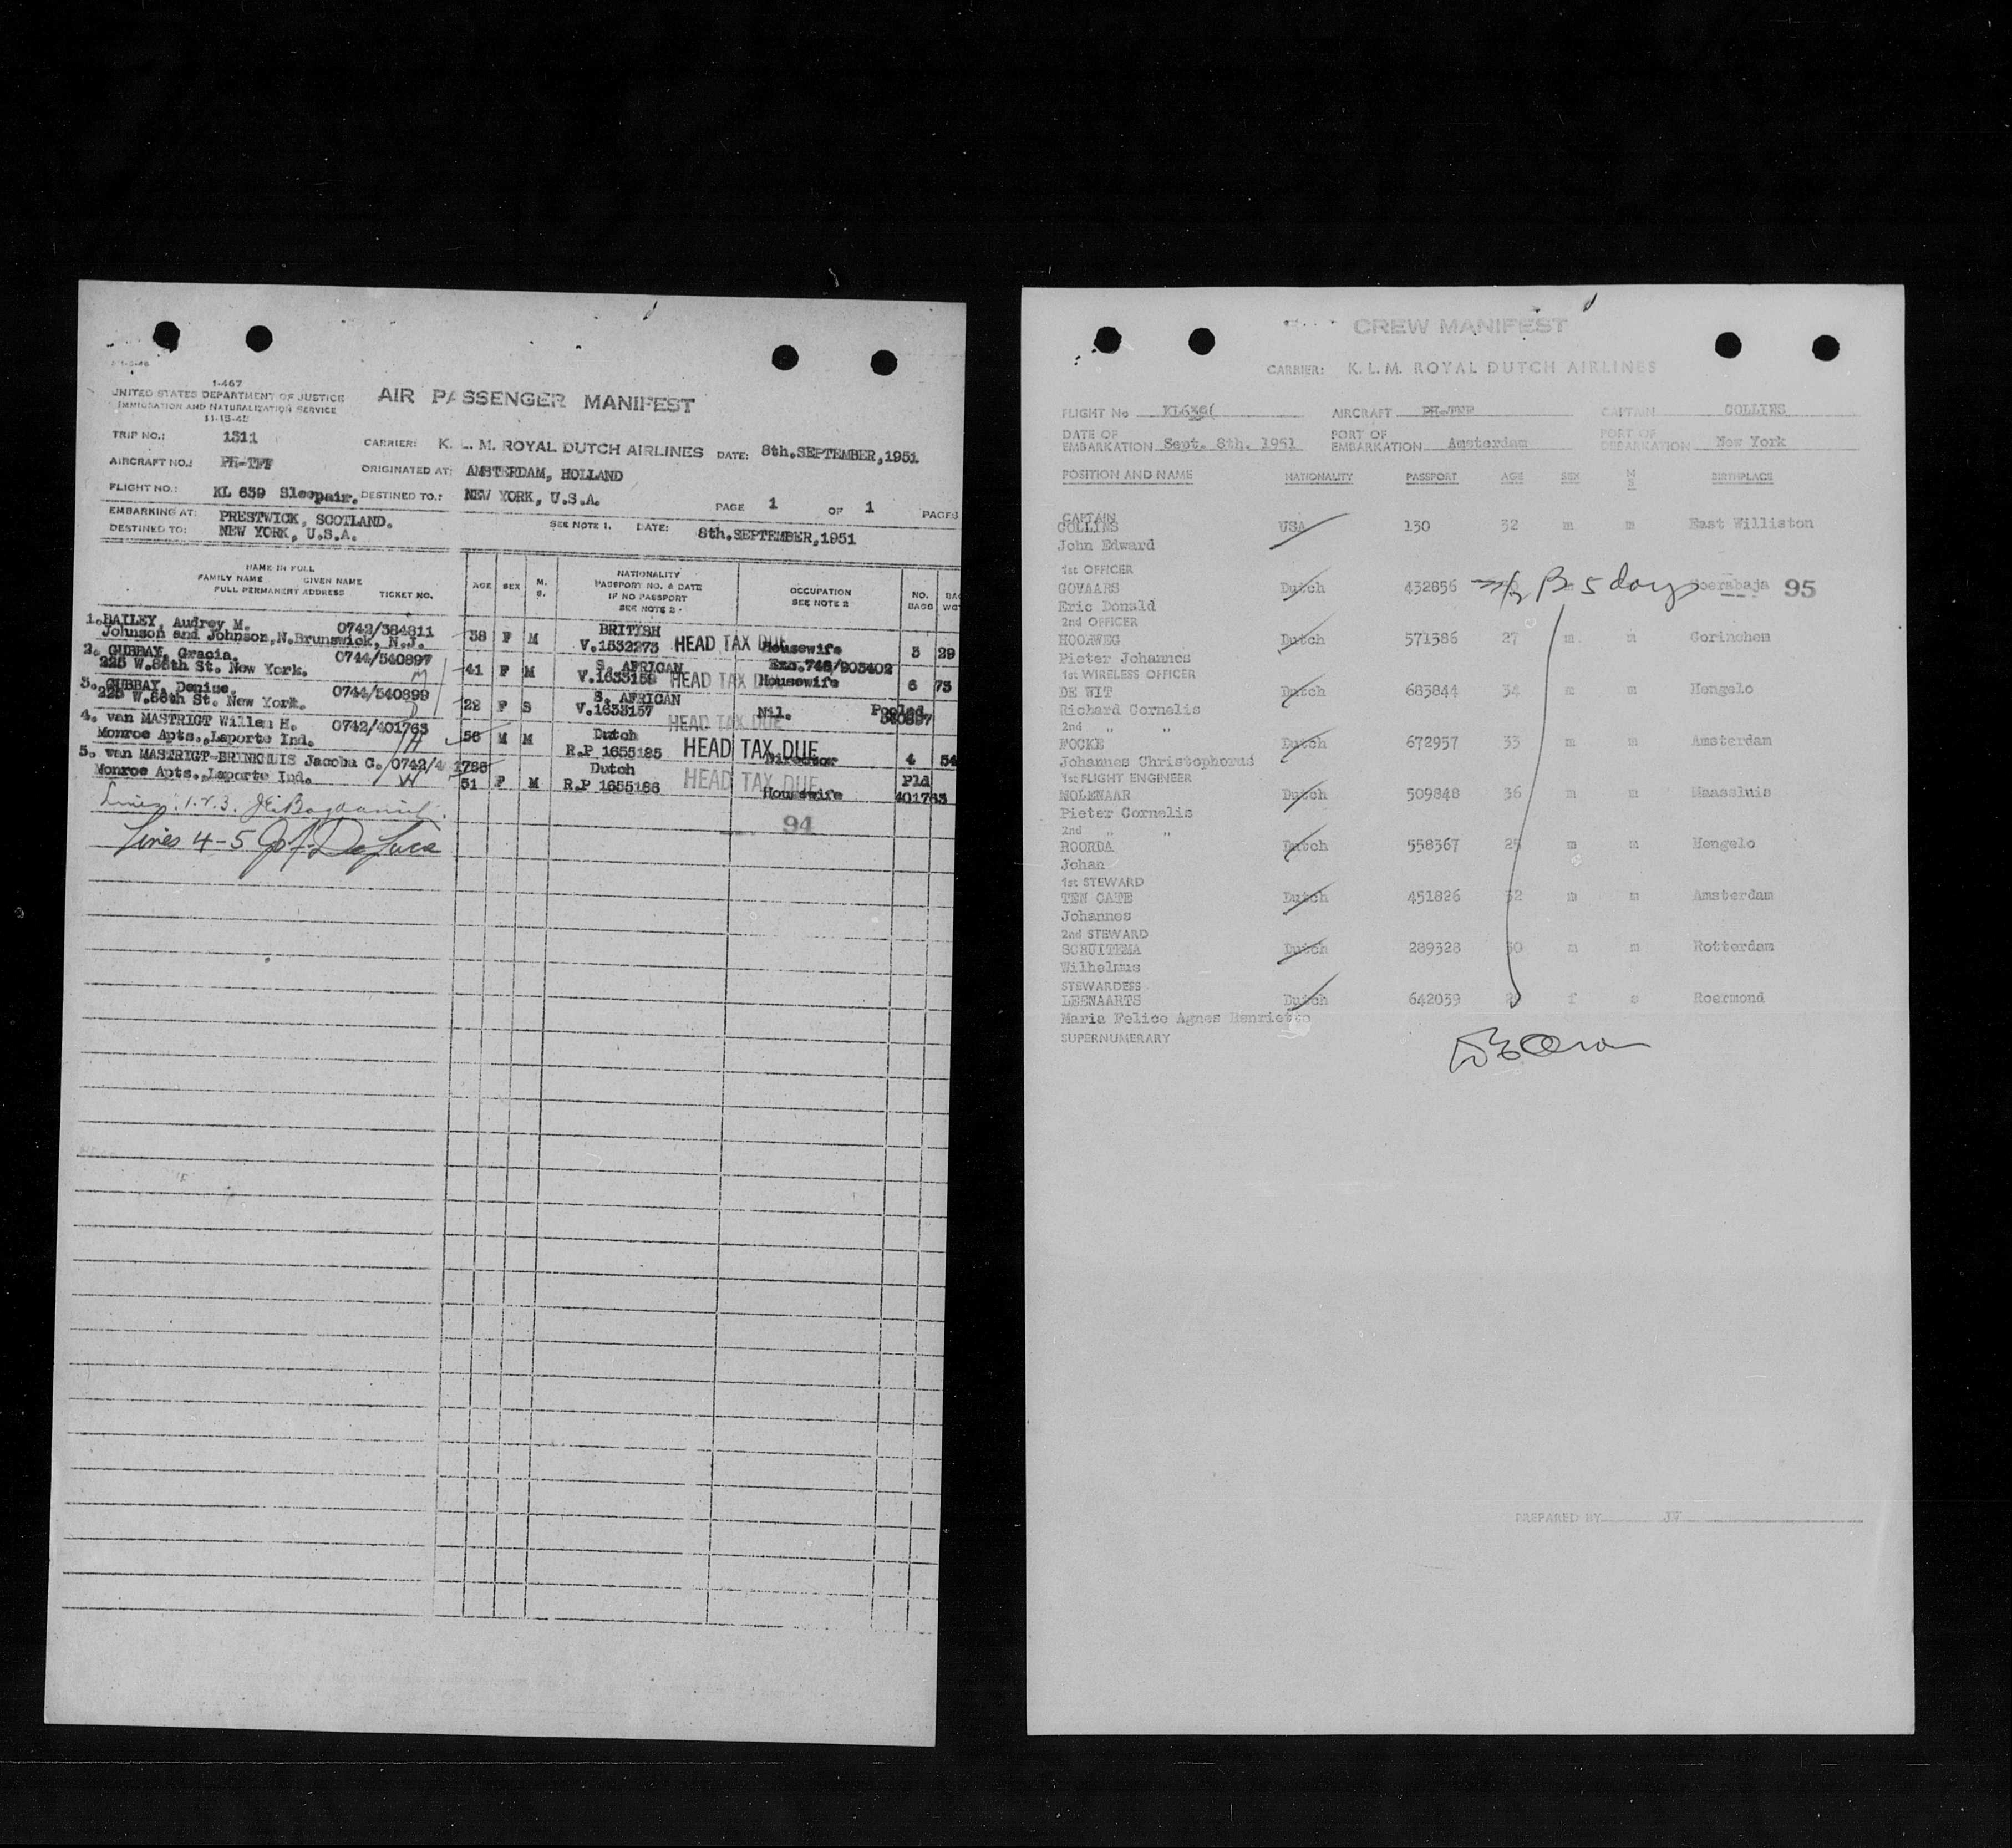 1-467
UNITED STATES DEPARTMENT OF JUSTICE
IMMIGRATION AND NATURALIZATION SERVICE
11-15-45
AIR PASSENGER MANIFEST
TRIP NO.: 1311
CARRIER: K. L. M. ROYAL DUTCH AIRLINES DATE: 8th.SEPTEMBER,1951
AIRCRAFT NO.: PH-TFF
ORIGINATED AT: AMSTERDAM, HOLLAND
FLIGHT NO.: KL 639 Sleepair. DESTINED TO.: NEW YORK, U.S.A. PAGE 1 OF 1 PAGES
EMBARKING AT: PRESTWICK, SCOTLAND.
DESTINED TO: NEW YORK, U.S.A. SEE NOTE 1. DATE: 8th.SEPTEMBER,1951
NAME IN FULL
FAMILY NAME GIVEN NAME
FULL PERMANENT ADDRESS TICKET NO.
AGE SEX M. S.
NATIONALITY
PASSPORT NO. & DATE
IF NO PASSPORT
SEE NOTE 2
OCCUPATION
SEE NOTE 2
NO. BAGS
1. BAILEY, Audrey M. 0742/384811 38 F M BRITISH
Johnson and Johnson,N.Brunswick, N.J. V.1532273 HEAD TAX DUE Housewife 3 29
2. GUBBAY, Gracia. 0744/540897 41 F M S. AFRICAN Exc.746/903402
225 W.86th St. New York. V.1633158 HEAD TAX DUE Housewife 6 73
3. GUBBAY, Denise. 0744/540899 22 F S S. AFRICAN Pooled
225 W.86th St. New York. V.1633157 HEAD TAX DUE Nil. 540897
4. van MASTRIGT Willem H. 0742/401763 56 M M Dutch
Monroe Apts.,Laporte Ind. H R.P 1655185 HEAD TAX DUE Director 4 54
5. van MASTRIGT-BRINKHUIS Jacoba G. 0742/4 1765 51 F M Dutch Pld
Monroe Apts.,Laporte Ind. W R.P 1655186 HEAD TAX DUE Housewife 401763
Lines 1.2.3.
94
Lines 4-5 De Luca
CREW MANIFEST
CARRIER: K. L. M. ROYAL DUTCH AIRLINES
FLIGHT No KL639 AIRCRAFT PH-TFF CAPTAIN COLLINS
DATE OF EMBARKATION Sept. 8th. 1951 PORT OF EMBARKATION Amsterdam PORT OF DEBARKATION New York
POSITION AND NAME NATIONALITY PASSPORT AGE SEX M S BIRTHPLACE
CAPTAIN
COLLINS USA 130 32 m m East Williston
John Edward
1st OFFICER
GOVAARS Dutch 432856 B 5 days Soerabaja 95
Eric Donald
2nd OFFICER
HOORWEG Dutch 571386 27 m m Gorinchem
Pieter Johannes
1st WIRELESS OFFICER
DE WIT Dutch 683844 34 m m Hengelo
Richard Cornelis
2nd " "
FOCKE Dutch 672957 33 m m Amsterdam
Johannes Christophorus
1st FLIGHT ENGINEER
MOLENAAR Dutch 509848 36 m m Maassluis
Pieter Cornelis
2nd " "
ROORDA Dutch 558367 25 m m Hengelo
Johan
1st STEWARD
TEN CATE Dutch 451826 32 m m Amsterdam
Johannes
2nd STEWARD
SCHUITEMA Dutch 289328 30 m m Rotterdam
Wilhelmus
STEWARDESS
LEENAARTS Dutch 642039 f s Roermond
Maria Felice Agnes Henrietto
SUPERNUMERARY
PREPARED BY JV